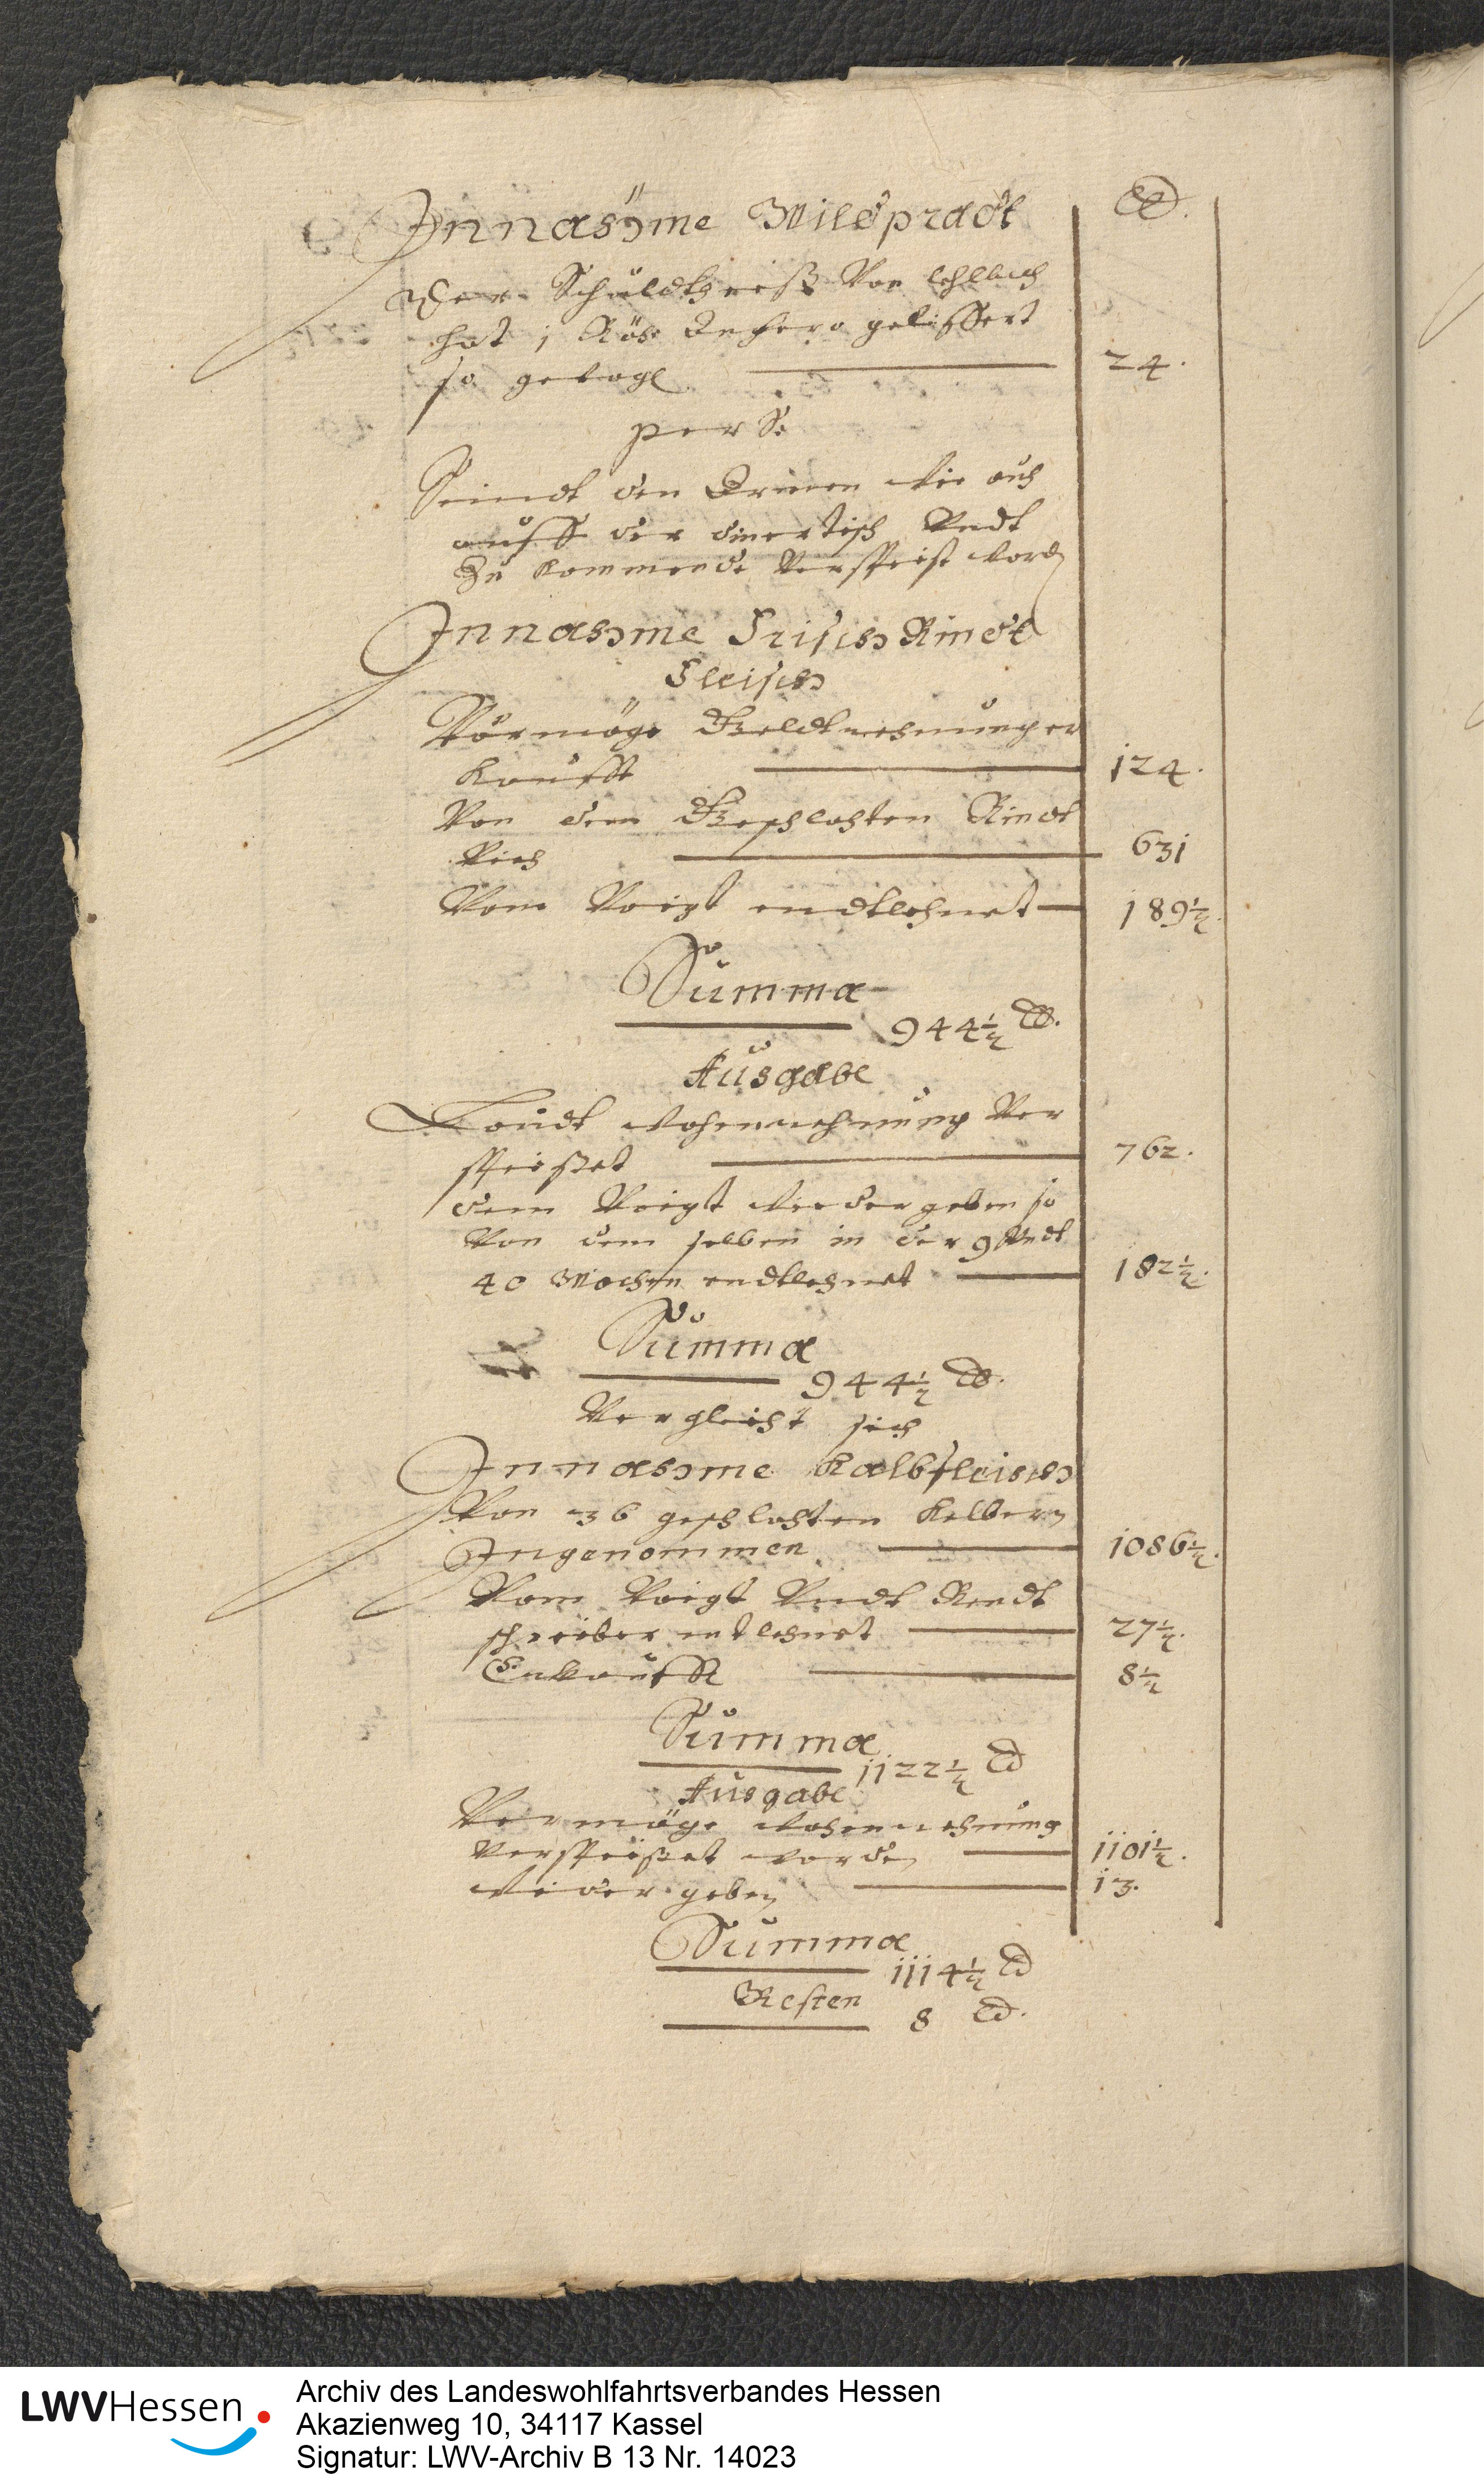 Innahme Wildpradt
℔.
Der Schuldtheiß Von
hat j Röhe Anhero geliffert
so gewogē 24.
per Se
Seindt den Armen wie auch
auff der dinertisch Vndt
Zu kommende Verspeist wordē
Innahme Frisch Rindt
Fleisch
Vermöge Geldtrechnung er
Kaufft 124.
Von dem Geschlachten Rindt
Vieh 631
Vom Voigt endtlehnet 189½.
Summa
944½ ℔.
Ausgabe
Laudt wochenrechnung Ver
speißet 762.
dem Voigt wieder geben so
Von dem selben in der 9 Vndt
40 Wochen endtlehnet 182½.
Summa
944½ ℔.
Vergleicht sich
Innahme Kalbfleisch
Von 36 geschlachten Kelbern
Ingenommen 1086½.
Vom Voigt Vndt Rendt
schreiber entlehnet 27½.
Erkaufft 8½
Summa
1122½ ℔
Ausgabe
Vermöge wochenrechnung
Verspeißet worden 1101½.
wieder geben 13.
Summa
1114½ ℔
Resten 8 ℔.
LWVHessen
Archiv des Landeswohlfahrtsverbandes Hessen
Akazienweg 10, 34117 Kassel
Signatur: LWV-Archiv B 13 Nr. 14023